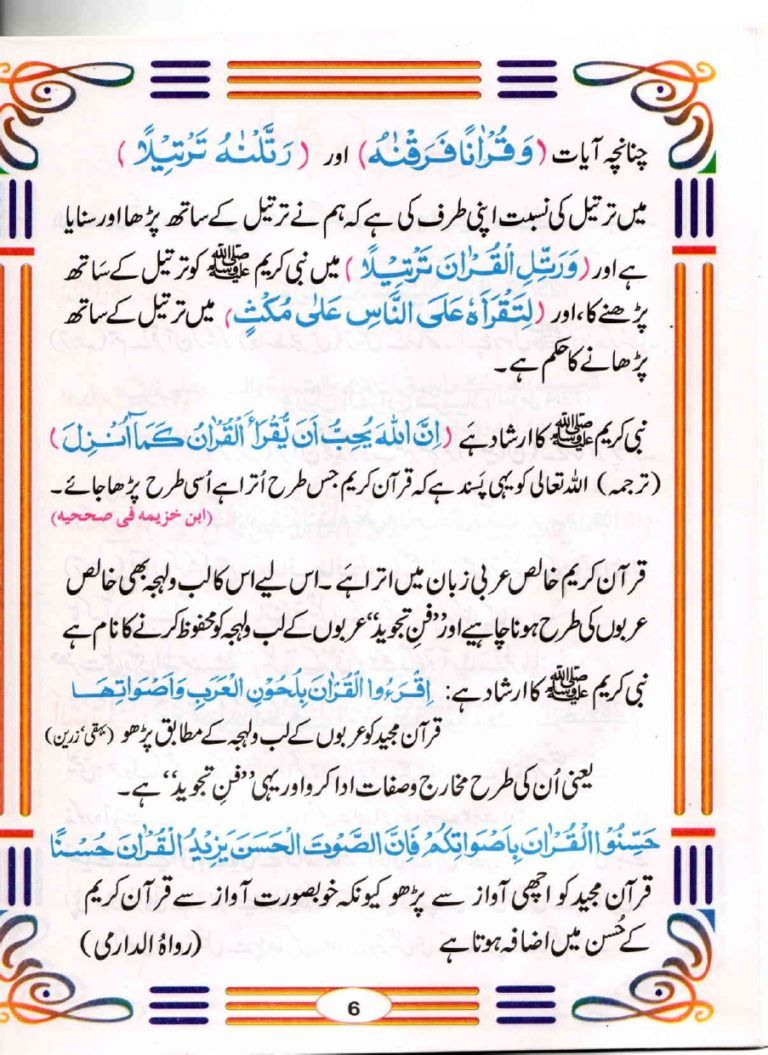 چنانچہ آیات (وَقُرْاٰنًا فَرَقْنٰهُ) اور (رَتَّلْنٰهُ تَرْتِيْلًا)
میں ترتیل کی نسبت اپنی طرف کی ہے کہ ہم نے ترتیل کے ساتھ پڑھا اور سنایا
ہے اور (وَرَتِّلِ الْقُرْاٰنَ تَرْتِيْلًا) میں نبی کریم ﷺ کو ترتیل کے سَاتھ
پڑھنے کا، اور (لِتَقْرَاَهٗ عَلَى النَّاسِ عَلٰى مُكْثٍ) میں ترتیل کے ساتھ
پڑھانے کا حکم ہے۔
نبی کریم ﷺ کا ارشاد ہے (اِنَّ اللّٰهَ يُحِبُّ اَنْ يُّقْرَأَ الْقُرْاٰنُ كَمَآ اُنْزِلَ)
(ترجمہ) اللہ تعالی کو یہی پَسند ہے کہ قرآن کریم جس طرح اُترا ہے اُسی طرح پڑھا جائے۔
(ابن خزیمه فی صححیه)
قرآن کریم خالص عربی زبان میں اترا ہَے۔ اس لیے اس کا لب ولہجہ بھی خالص
عربوں کی طرح ہونا چاہیے اور ”فنِ تجوید“ عربوں کے لب ولہجہ کو محفوظ کرنے کا نام ہے
نبی کریم ﷺ کا ارشاد ہے: اِقْرَءُوا الْقُرْاٰنَ بِلُحُوْنِ الْعَرَبِ وَاَصْوَاتِهَا
قرآن مجید کو عربوں کے لب ولہجہ کے مطابق پڑھو (بیہقی، زرین)
یعنی اُن کی طرح مخارج وصفات ادا کرو اور یہی ”فنِ تجوید“ ہے۔
حَسِّنُوا الْقُرْاٰنَ بِاَصْوَاتِكُمْ فَاِنَّ الصَّوْتَ الْحَسَنَ يَزِيْدُ الْقُرْاٰنَ حُسْنًا
قرآن مجید کو اچھی آواز سے پڑھو کیونکہ خوبصورت آواز سے قرآن کریم
کے حُسن میں اضافہ ہوتا ہے (رواہُ الدارمی)
6